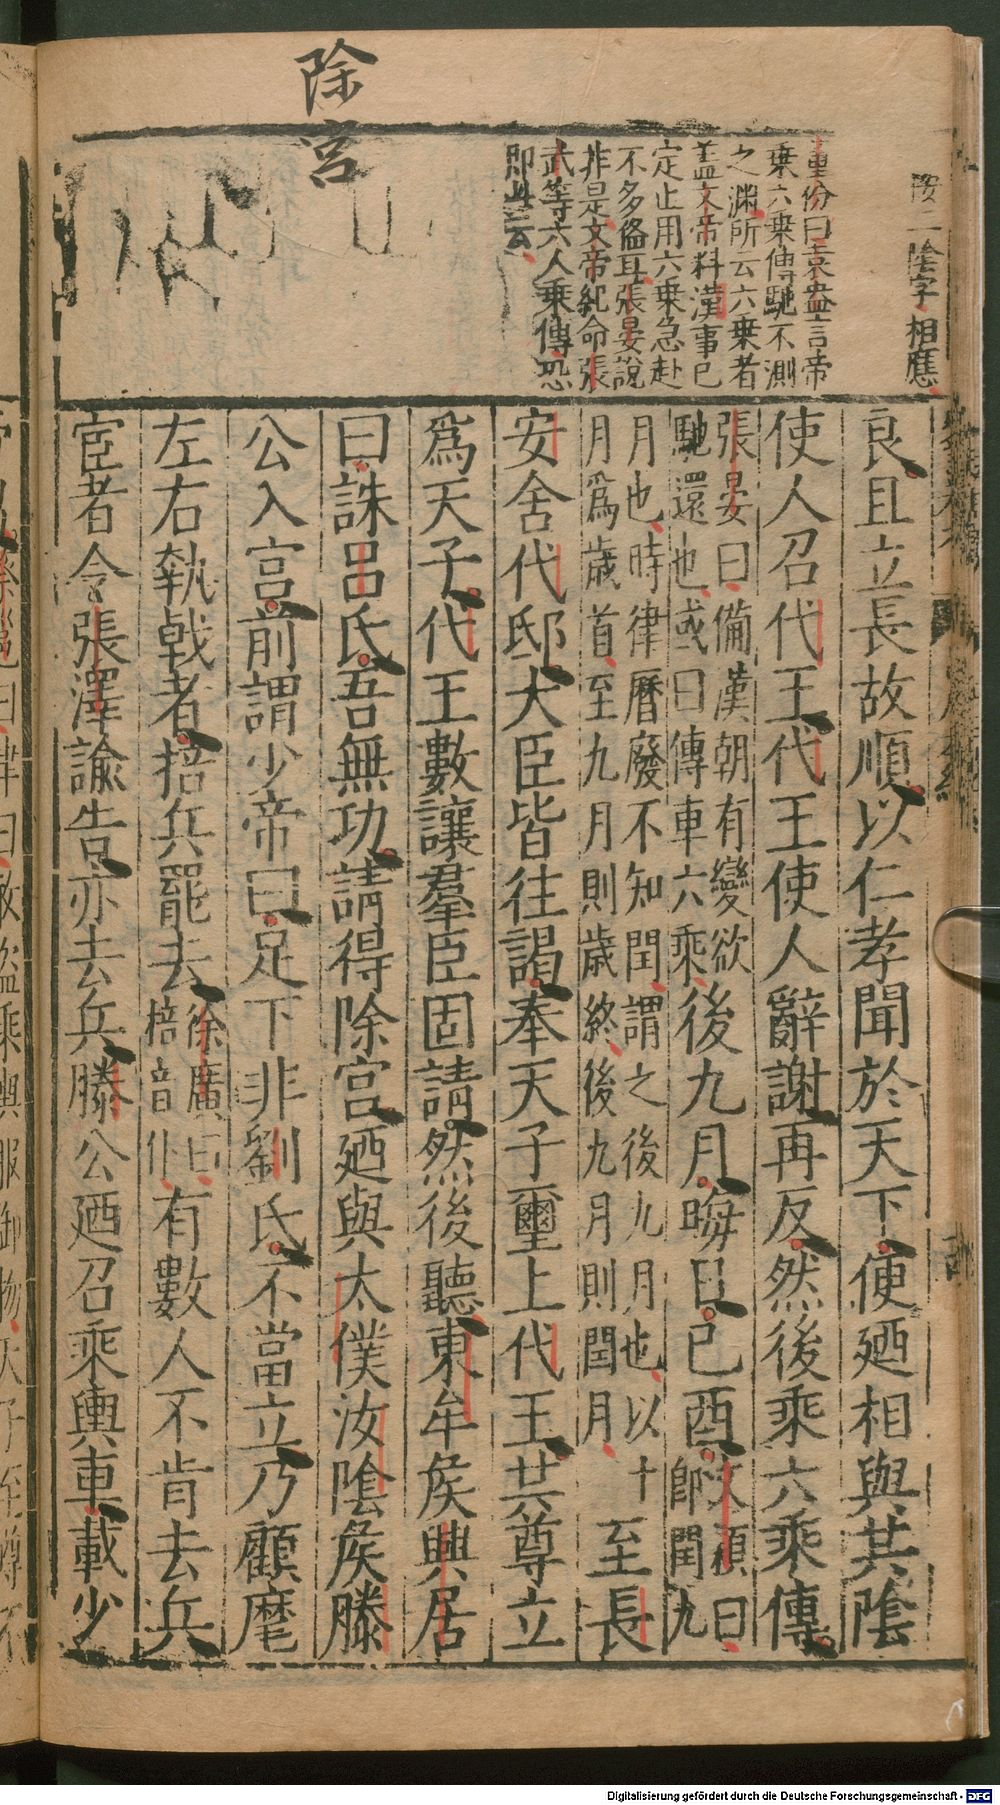 除宮
按二陰字相應
重份曰袁盎言帝
乗六乗傳馳不測
之淵所云六乗者
蓋文帝料漢事已
定止用六乗急赴
不多俻耳張晏說
非是文帝紀命張
武等六人乗傳恐
即此云
良且立長故順以仁孝聞於天下便廼相與共陰
使人召代王代王使人辭謝再反然後乘六乘傳
張晏曰備漢朝有變欲
馳還也或曰傳車六乘
後九月晦日己酉
文穎曰
即閏九
月也時律曆廢不知閏謂之後九月也以十
月爲歲首至九月則歲終後九月則閏月
至長
安舍代邸大臣皆往謁奉天子璽上代王共尊立
爲天子代王數讓羣臣固請然後聽東牟矦興居
曰誅呂氏吾無功請得除宮廼與太僕汝陰矦滕
公入宮前謂少帝曰足下非劉氏不當立乃顧麾
左右執戟者掊兵罷去
徐廣曰
掊音仆
有數人不肯去兵
宦者令張澤諭告亦去兵滕公廼召乘輿車載少
Digitalisierung gefördert durch die Deutsche Forschungsgemeinschaft - DFG